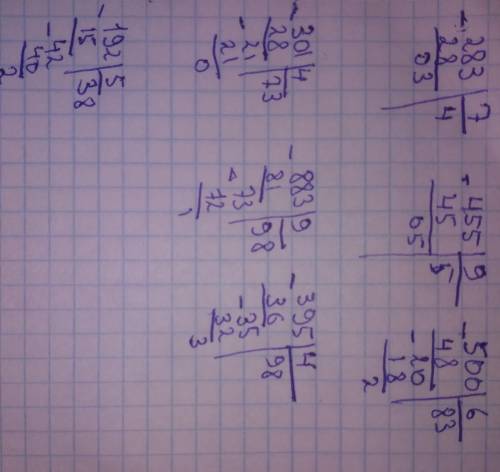 -283|7
28|4
03
-455|9
45|5
05
-500|6
48|83
-20
18
2
-301|4
28|73
-21
21
0
-883|9
81|98
-73
72
1
-395|4
36|98
-35
32
3
-192|5
15|38
-42
40
2